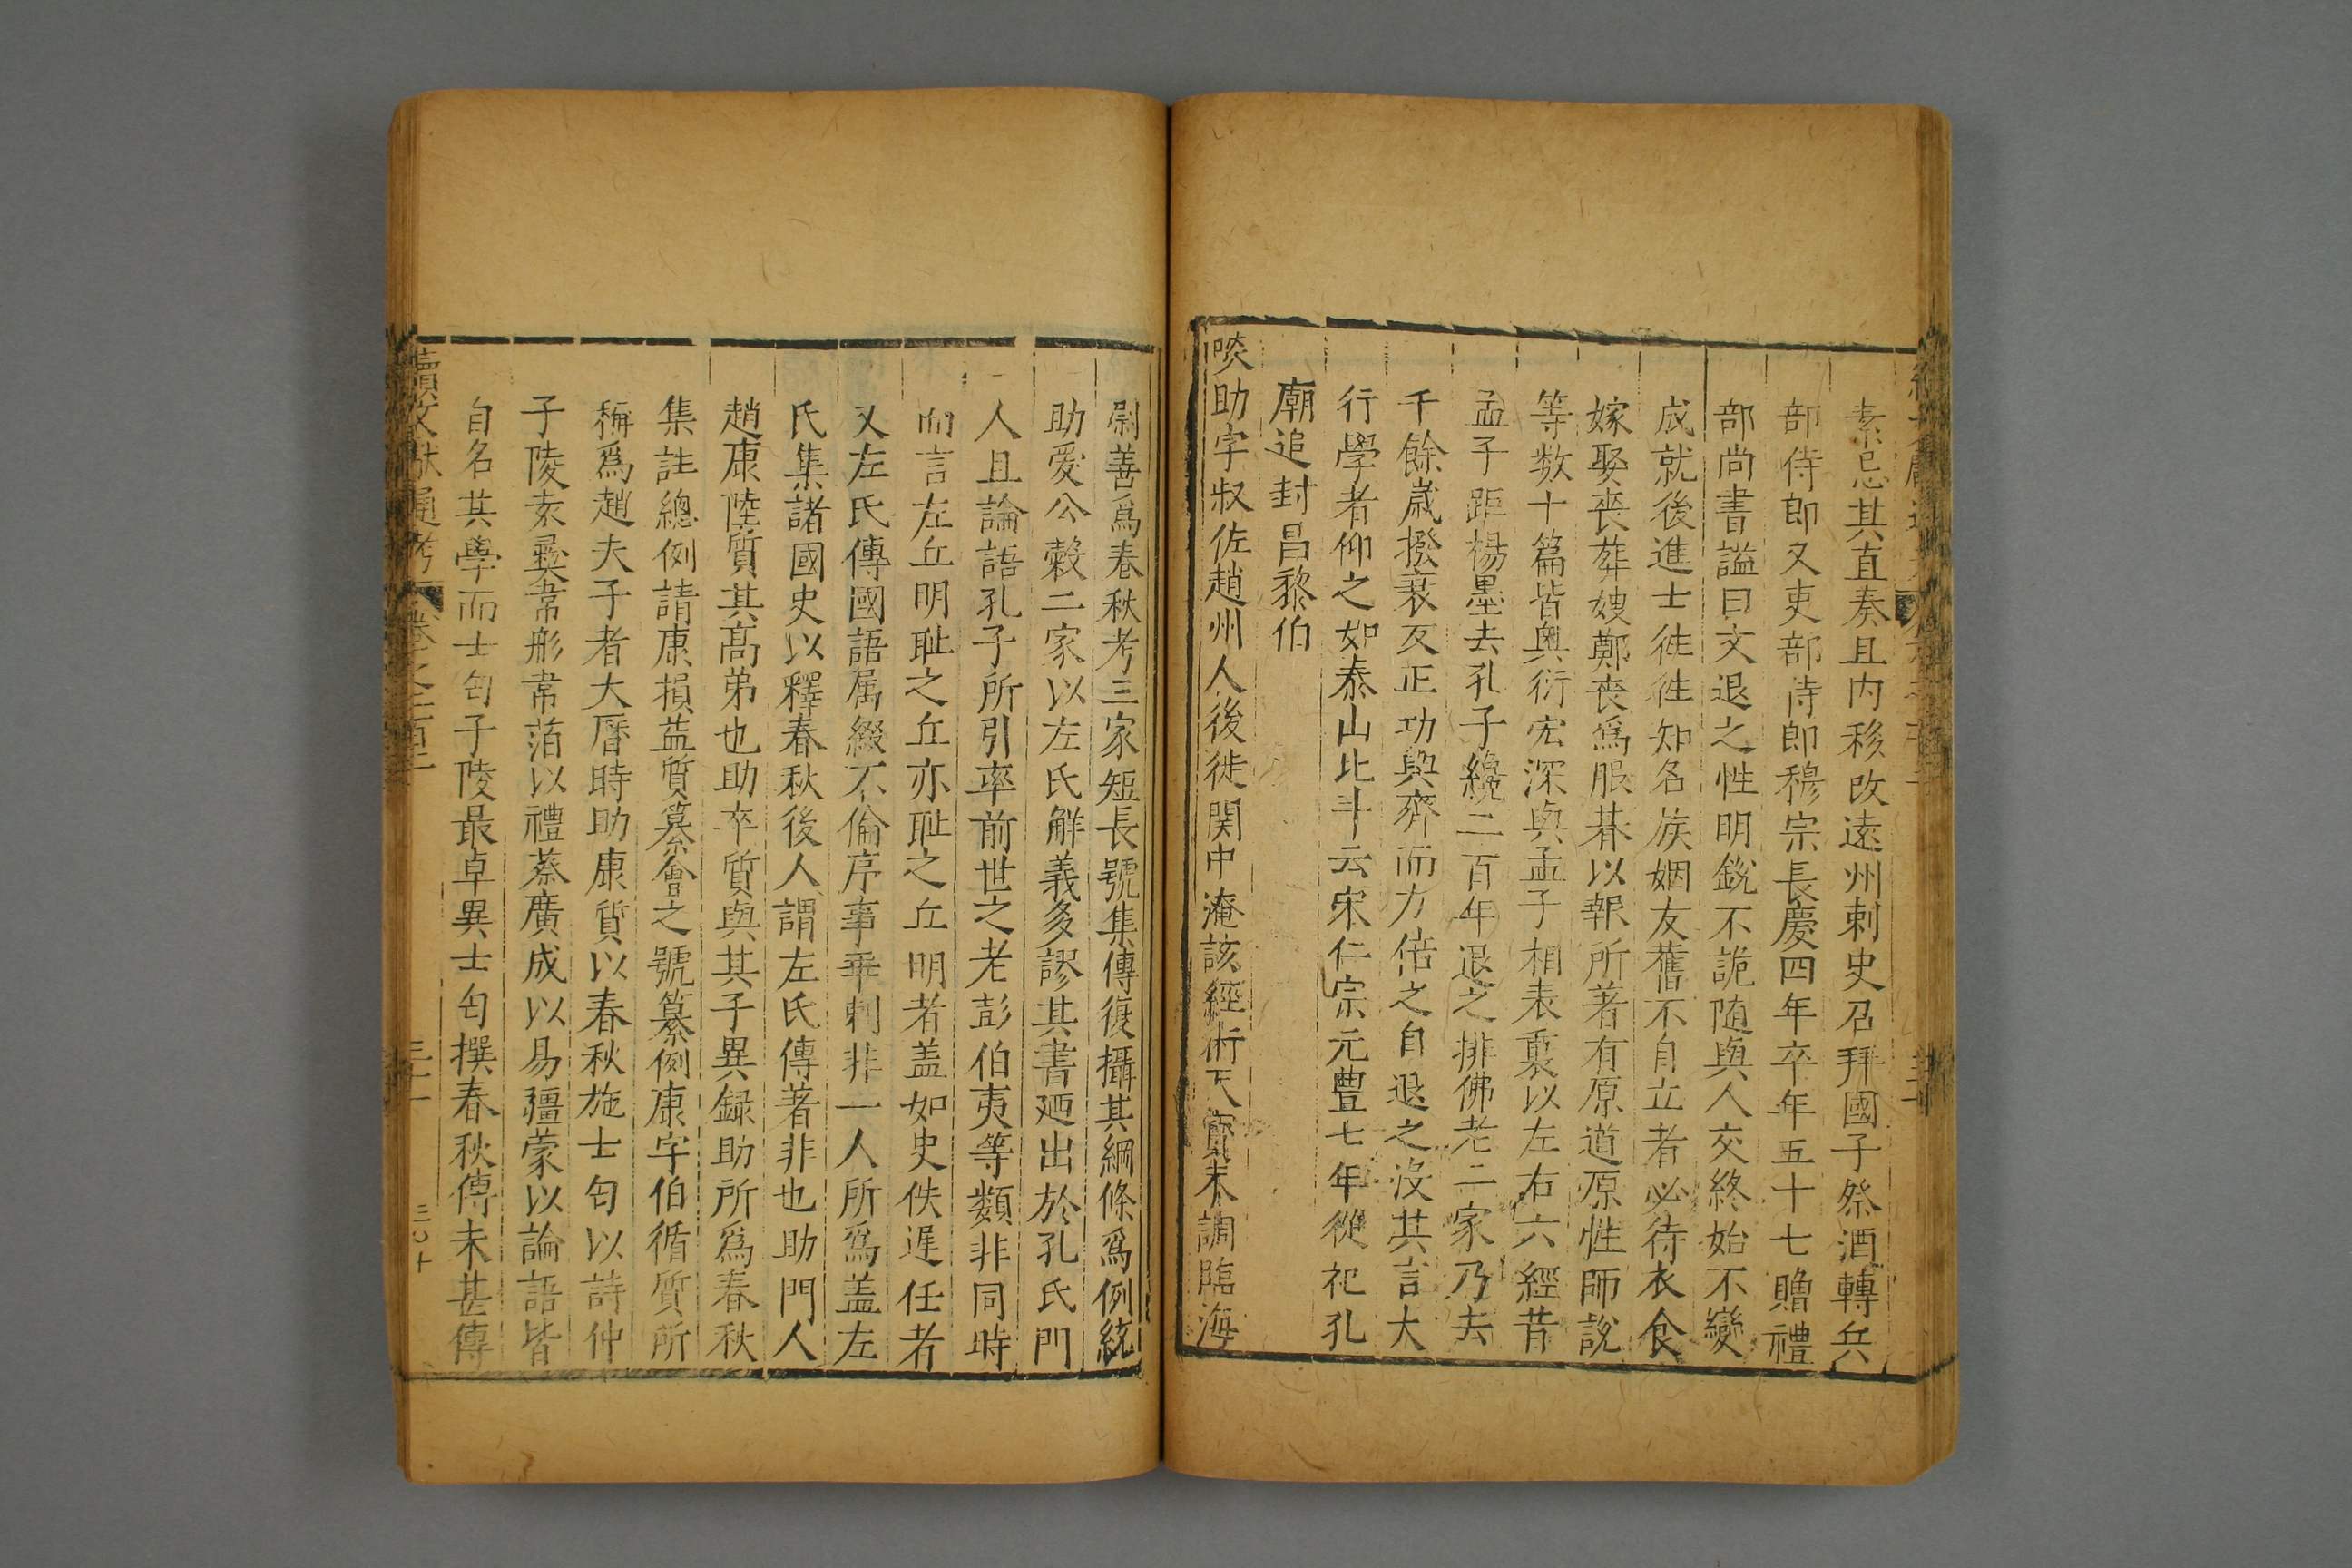 素忌其直奏且内移改遠州刺史召拜國子祭酒轉兵
部侍郎又吏部侍郎穆宗長慶四年卒年五十七贈禮
部尚書謚曰文退之性明銳不詭随與人交終始不變
成就後進士徃徃知名族姻友舊不自立者必待衣食
嫁娶䘮葬嫂鄭䘮為服朞以報所著有原道原性師說
等数十篇皆奥衍宏深與孟子相表裏以左右六經昔
孟子距楊墨去孔子纔二百年退之排佛老二家乃去
千餘嵗撥衰反正功與齊而力倍之自退之没其言大
行學者仰之如泰山北斗云宋仁宗元豊七年從祀孔
廟追封昌黎伯
啖助字叔佐趙州人後徙関中淹該經術天寳末調臨海
尉善爲春秋考三家短長號集傳復攝其綱條爲例統
助愛公穀二家以左氏解義多謬其書廼出於孔氏門
人且論語孔子所引率前世之老彭伯夷等類非同時
而言左丘明耻之丘亦耻之丘明者盖如史佚遲任者
又左氏傳國語属綴不倫序事乖剌非一人所爲盖左
氏集諸國史以釋春秋後人謂左氏傳著非也助門人
趙康陸質其高弟也助卒質與其子異録助所爲春秋
集註總例請康損益質纂會之號纂例康字伯循質所
稱爲趙夫子者大曆時助康質以春秋施士匄以詩仲
子陵袁彛韋彤韋茝以禮蔡廣成以易彊蒙以論語皆
自名其學而士匄子陵最卓異士匄撰春秋傳未甚傳
續文献通考 卷之二百一 三十一